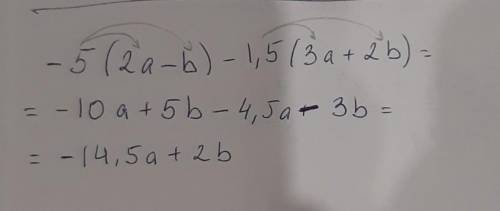 -5(2a-b)-1,5(3a+2b)=
=-10a+5b-4,5a-3b=
=-14,5a+2b